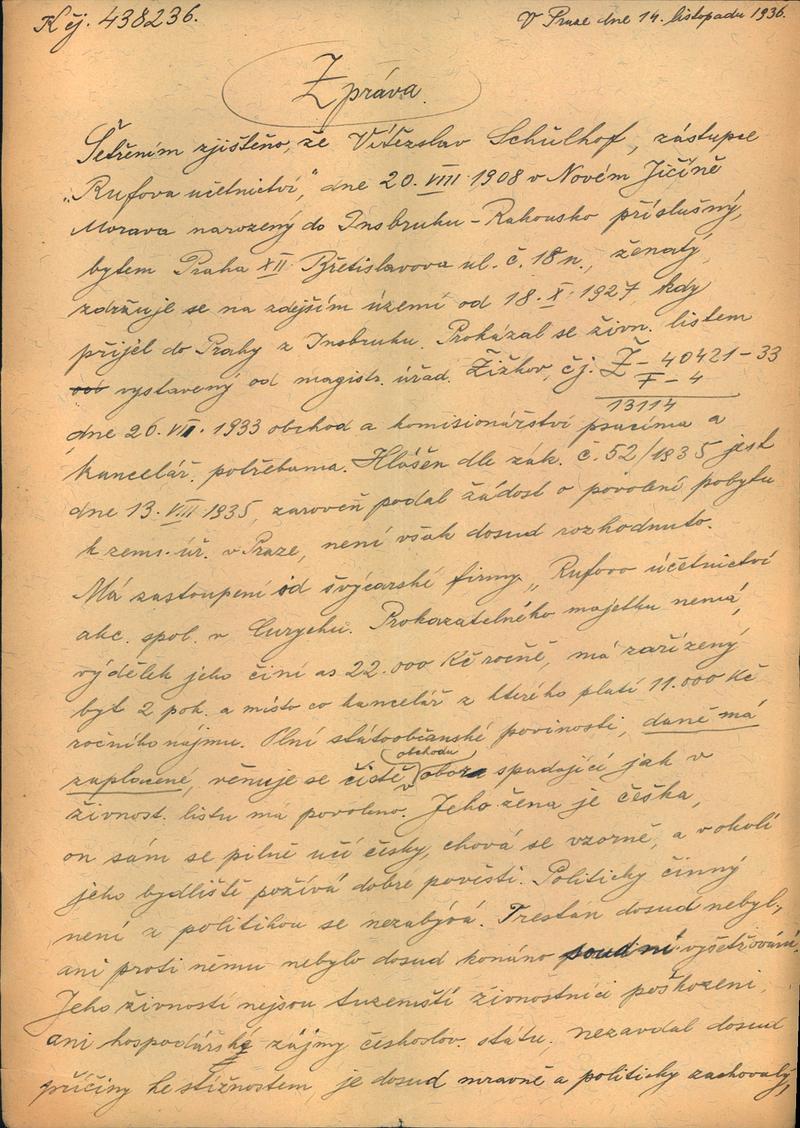 K čj. 438236.
V Praze dne 14. listopadu 1936.
Zpráva.
Šetřením zjištěno, že Vítězslav Schulhof, zástupce
„Rufova učetnictví“, dne 20. VIII 1908 v Novém Jičíně
Morava narozený do Insbruku - Rakousko příslušný,
bytem Praha XII Břetislavova ul. č. 18 n., ženatý,
zdržuje se na zdejším území od 18. X. 1927, kdy
přijel do Prahy z Insbruku. Prokázal se živn. listem
vystavený od magistr. úřad. Žižkov, čj. Ž - 40421-33
F - 4
13114
dne 26. VII. 1933 obchod a komisionářství psacíma a
kancelář. potřebama. Hlášen dle zák. č. 52/1935 jest
dne 13. VIII 1935, zároveň podal žádost o povolení pobytu
k zems. úř. v Praze, není však dosud rozhodnuto.
Má zastoupení od švýcarské firmy „Rufovo účetnictví
akc. spol. v Curychu. Prokazatelného majetku nemá,
výdělek jeho činí as 22.000 Kč ročně, má zařízený
byt 2 pok. a místo co kancelář z kterého platí 11.000 Kč
ročního nájmu. Plní státoobčanské povinosti, daně má
obchodu
zaplacené, věnuje se čistě oboru spadající jak v
živnost. listu má povoleno. Jeho žena je češka,
on sám se pilně učí česky, chová se vzorně, a v okolí
jeho bydliště požívá dobré pověsti. Politicky činný
není a politikou se nezabývá. Trestán dosud nebyl,
ani proti němu nebylo dosud konáno soudní vyšetřování.
Jeho živností nejsou tuzemští živnostníci poškozeni,
ani hospodářské zájmy českoslov. státu, nezavdal dosud
příčiny ke stížnostem, je dosud mravně a politicky zachovalý,